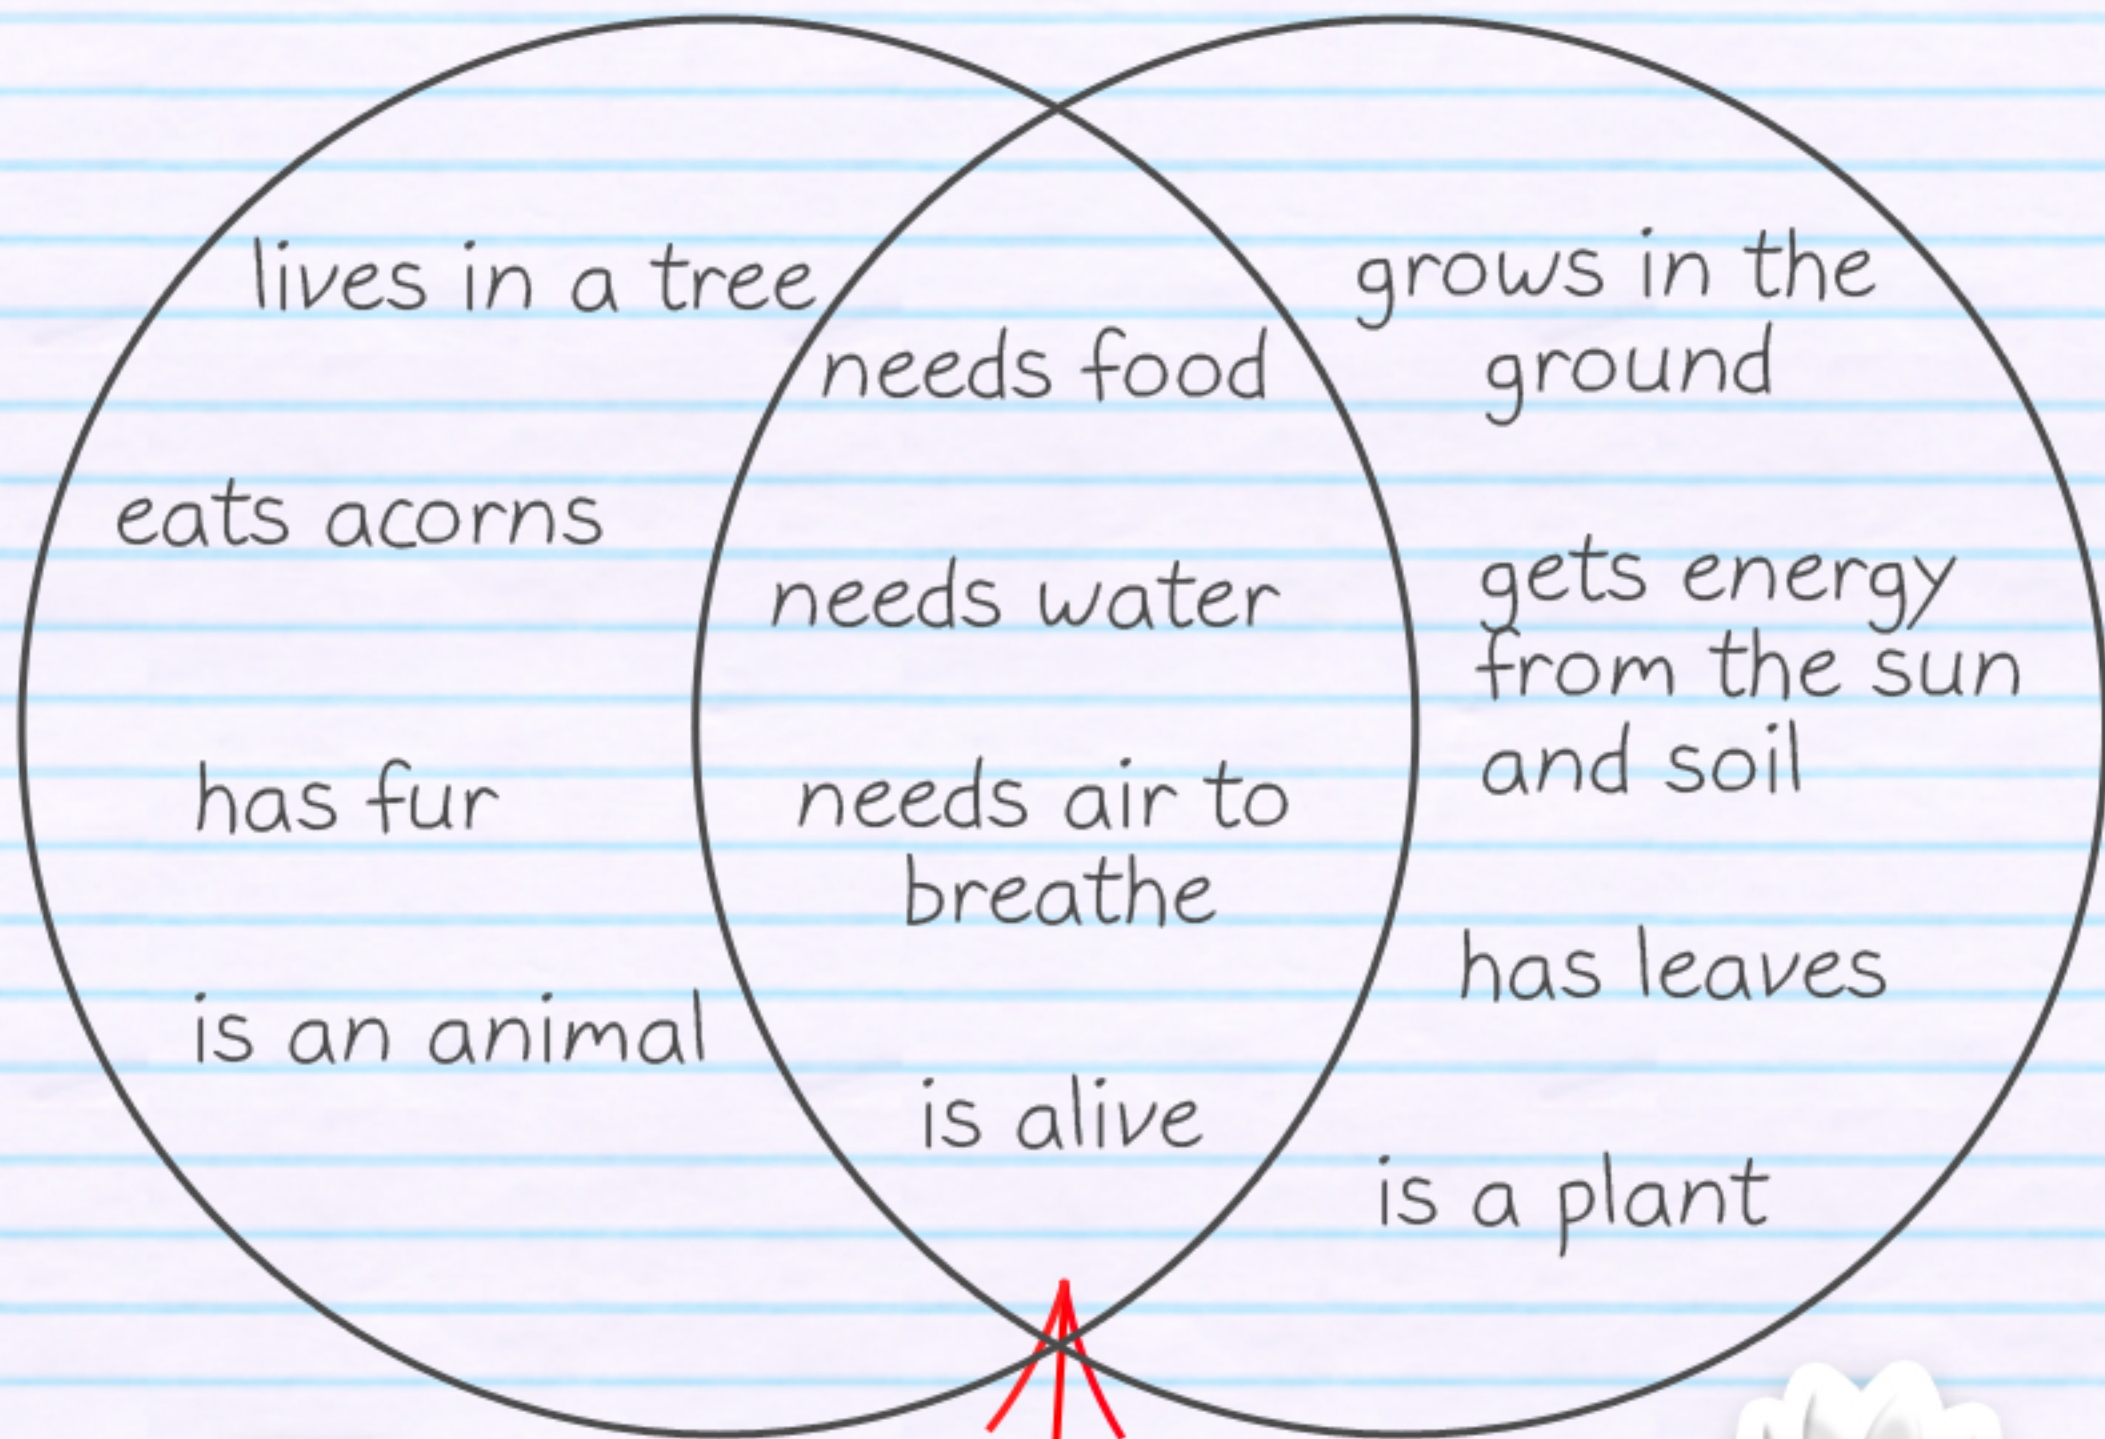 lives in a tree
eats acorns
has fur
is an animal
needs food
needs water
needs air to
breathe
is alive
grows in the
ground
gets energy
from the sun
and soil
has leaves
is a plant